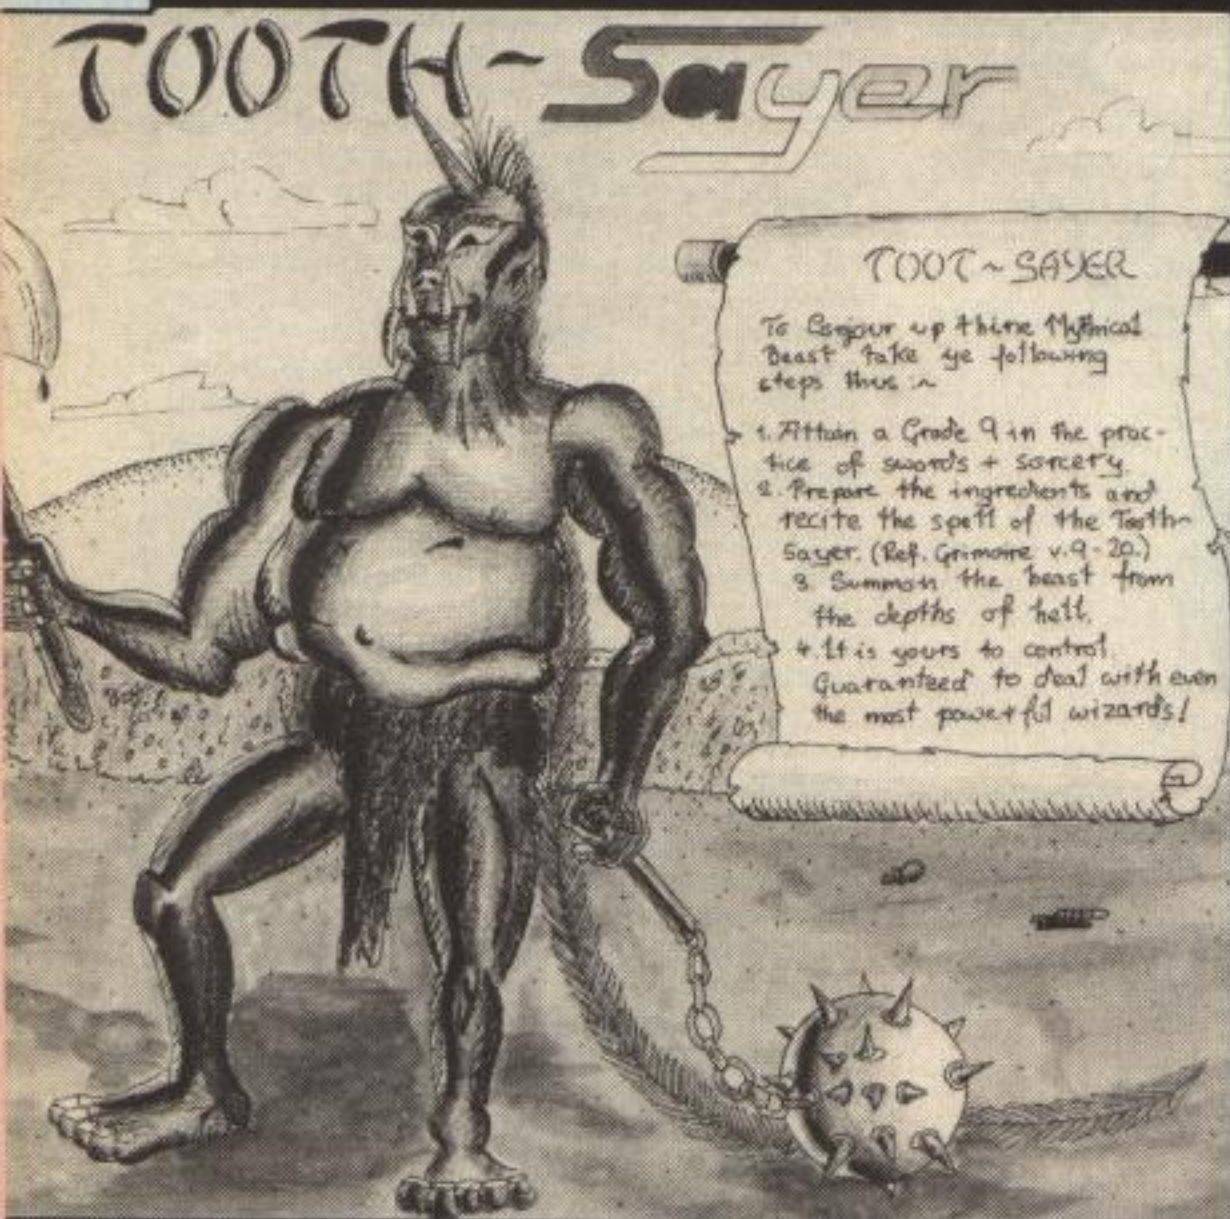 TOOTH~Sayer
TOOT~SAYER
To Conjour up thine Mythical
Beast take ye following
steps thus:~
1. Attain a Grade 9 in the prac-
tice of swords + sorcery
2. Prepare the ingredients and
recite the spell of the Tooth~
Sayer. (Ref. Grimoire v.9-20.)
3. Summon the beast from
the depths of hell.
4. It is yours to control.
Guaranteed to deal with even
the most powerful wizards!